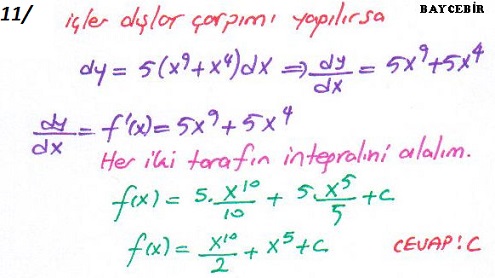 11/ içler dışlar çarpımı yapılırsa BAYCEBİR
dy = 5(x⁹+x⁴)dx ⇒ dy/dx = 5x⁹+5x⁴
dy/dx = f'(x) = 5x⁹+5x⁴
Her iki tarafın integralini alalım.
f(x) = 5.x¹⁰/10 + 5.x⁵/5 + c
f(x) = x¹⁰/2 + x⁵+c CEVAP!C